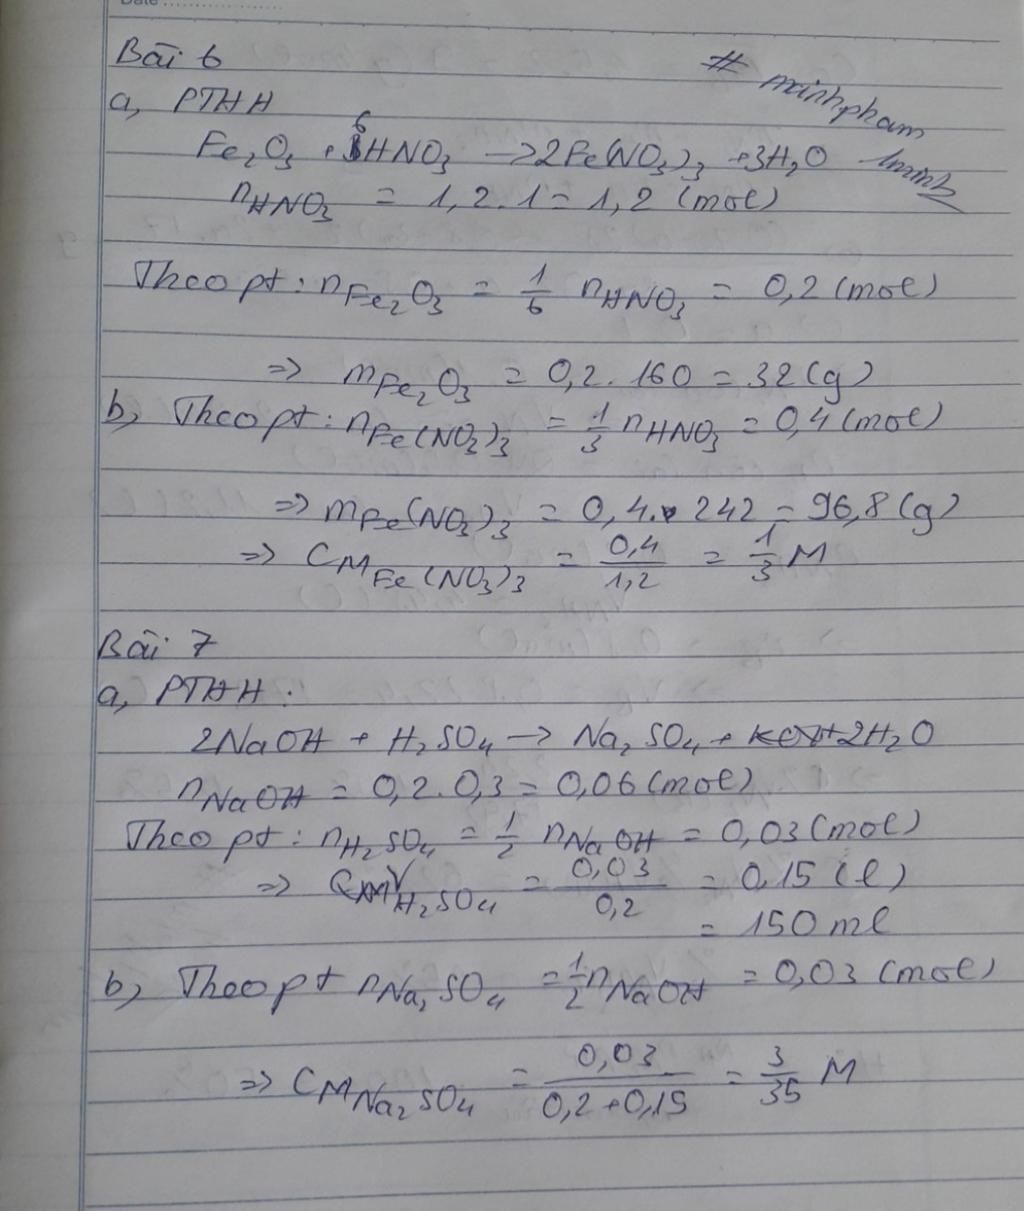 Date
Bài 6
# minhpham
a, PTHH
Fe₂O₃ + 6HNO₃ → 2Fe(NO₃)₃ + 3H₂O
nHNO₃ = 1,2 . 1 = 1,2 (mol)
Theo pt : nFe₂O₃ = 1/6 nHNO₃ = 0,2 (mol)
=> mFe₂O₃ = 0,2 . 160 = 32 (g)
b, Theo pt : nFe(NO₃)₃ = 1/3 nHNO₃ = 0,4 (mol)
=> mFe(NO₃)₃ = 0,4 . 242 = 96,8 (g)
=> CMFe(NO₃)₃ = 0,4/1,2 = 1/3 M
Bài 7
a, PTHH :
2NaOH + H₂SO₄ → Na₂SO₄ + 2H₂O
nNaOH = 0,2 . 0,3 = 0,06 (mol)
Theo pt : nH₂SO₄ = 1/2 nNaOH = 0,03 (mol)
=> VH₂SO₄ = 0,03/0,2 = 0,15 (l)
= 150 ml
b, Theo pt nNa₂SO₄ = 1/2 nNaOH = 0,03 (mol)
=> CMNa₂SO₄ = 0,03/0,2 + 0,15 = 3/35 M